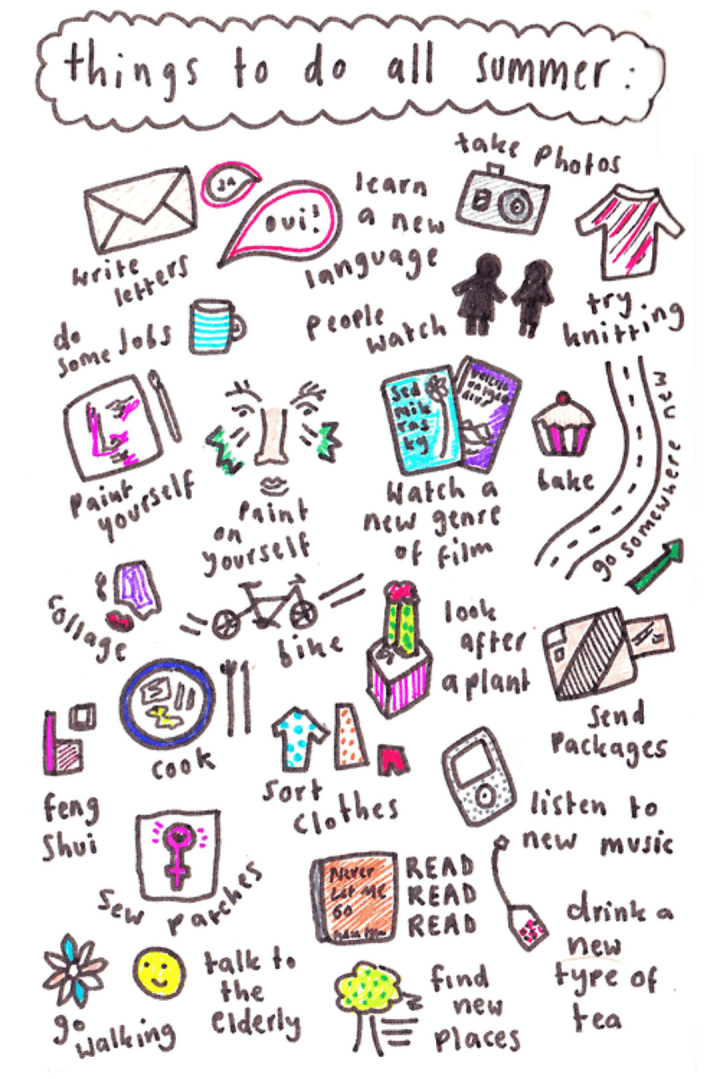 things to do all summer:
take photos
ja
oui!
learn
a new
language
write
letters
try
knitting
people
watch
do
some jobs
sed
mik
ras
ky
new
go somewhere
bake
paint
yourself
paint
on
yourself
watch a
new genre
of film
collage
bike
look
after
a plant
send
packages
cook
sort
clothes
feng
shui
listen to
new music
sew patches
Never
Let me
Go
READ
READ
READ
drink a
new
type of
tea
go
walking
talk to
the
elderly
find
new
places